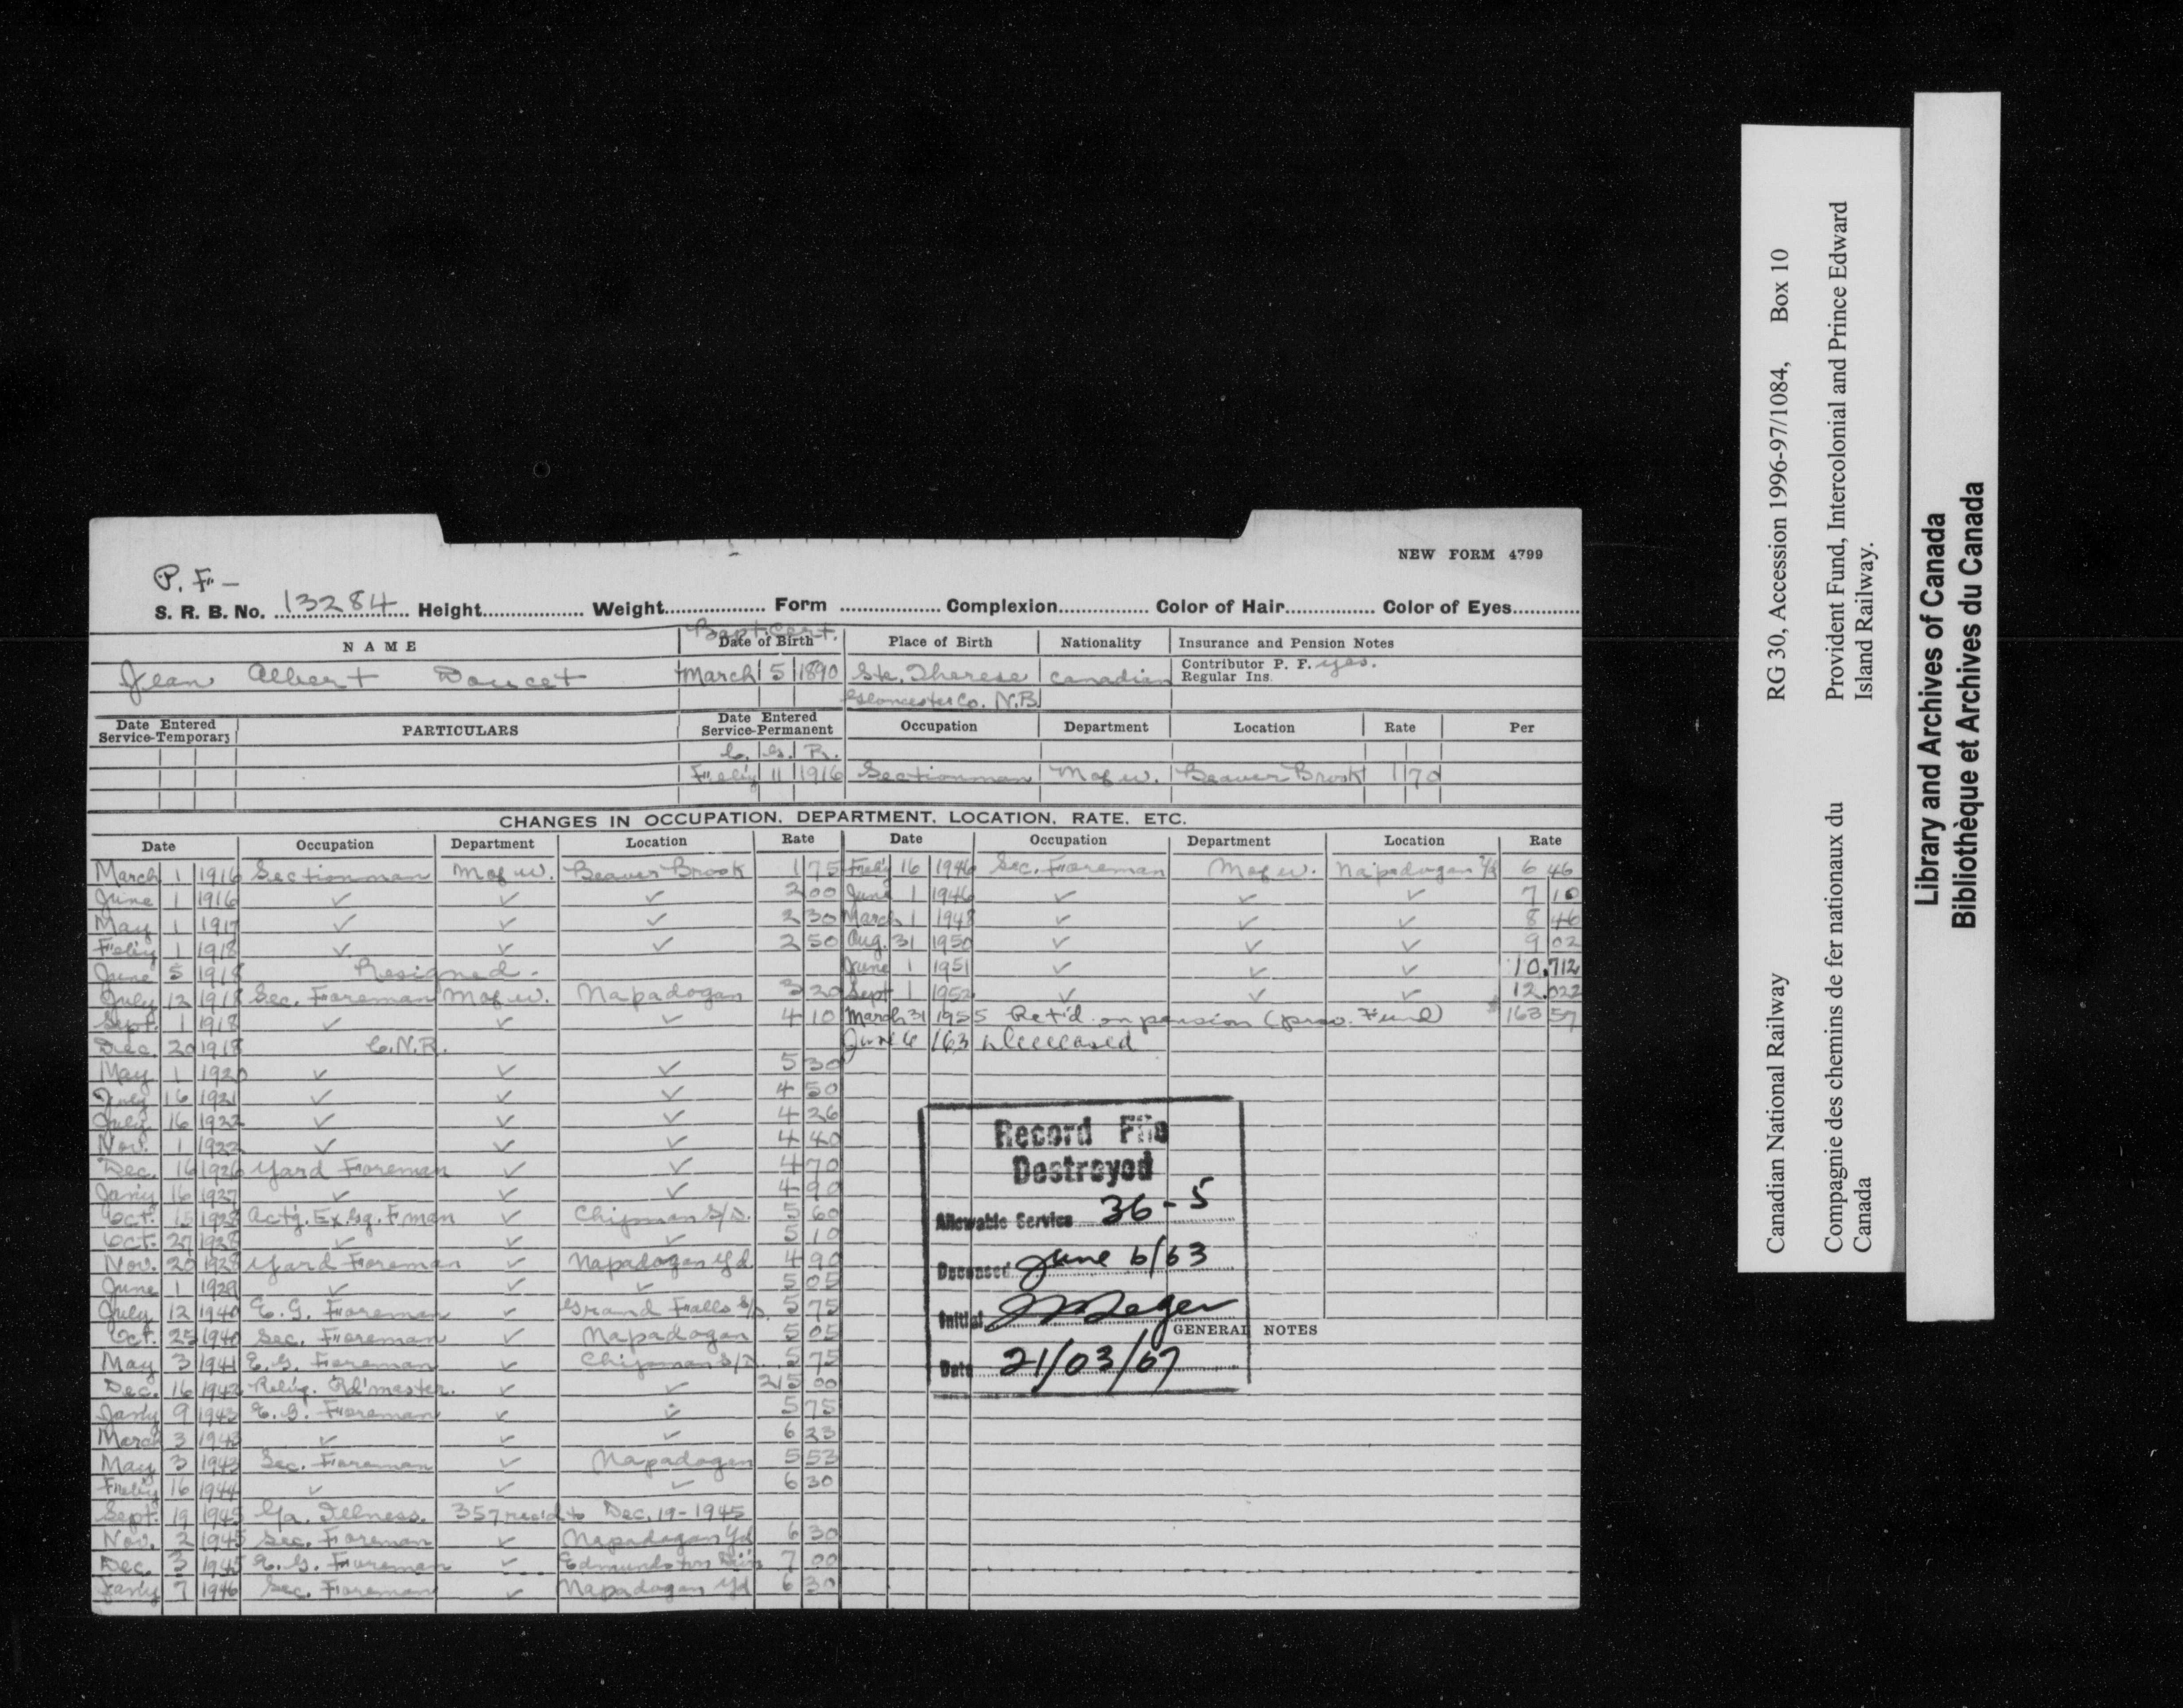 NEW FORM 4799
P. F. –
S. R. B. No. 13284 Height Weight Form Complexion Color of Hair Color of Eyes
Bapt. Cert.
NAME Date of Birth Place of Birth Nationality Insurance and Pension Notes
Jean Albert Doucet March 5 1890 Ste. Therese Canadian Contributor P. F. yes.
Regular Ins.
Gloucester Co. N.B.
Date Entered Service-Temporary PARTICULARS Date Entered Service-Permanent Occupation Department Location Rate Per
C. G. R.
Feb'y 11 1916 Sectionman M of W. Beaver Brook 1 70
CHANGES IN OCCUPATION, DEPARTMENT, LOCATION, RATE, ETC.
Date Occupation Department Location Rate Date Occupation Department Location Rate
March 1 1916 Sectionman M of W. Beaver Brook 1 75
June 1 1916 ✓ ✓ ✓ 2 00
May 1 1917 ✓ ✓ ✓ 2 30
Feb'y 1 1918 ✓ ✓ ✓ 2 50
June 5 1918 Resigned.
July 12 1918 Sec. Foreman M of W. Napadogan 3 20
Sept. 1 1918 ✓ ✓ ✓ 4 10
Dec. 20 1918 C.N.R.
May 1 1920 ✓ ✓ ✓ 5 30
July 16 1921 ✓ ✓ ✓ 4 50
July 16 1922 ✓ ✓ ✓ 4 26
Nov. 1 1922 ✓ ✓ ✓ 4 40
Dec. 16 1926 Yard Foreman ✓ ✓ 4 70
Jan'y 16 1927 ✓ ✓ ✓ 4 90
Oct. 15 1928 Act'g. Ex. Gg. F'man ✓ Chipman S/D. 5 60
Oct. 27 1928 ✓ ✓ ✓ 5 10
Nov. 20 1928 Yard Foreman ✓ Napadogan Yd 4 90
June 1 1929 ✓ ✓ ✓ 5 05
July 12 1940 E. G. Foreman ✓ Grand Falls S/D. 5 75
Oct. 25 1940 Sec. Foreman ✓ Napadogan 5 05
May 3 1941 E. G. Foreman ✓ Chipman S/D. 5 75
Dec. 16 1942 Reli'g. Rd'master. ✓ ✓ 215 00
Jan'y 9 1943 E. G. Foreman ✓ ✓ 5 75
March 3 1943 ✓ ✓ ✓ 6 23
May 3 1943 Sec. Foreman ✓ Napadogan 5 53
Feb'y 16 1944 ✓ ✓ ✓ 6 30
Sept. 19 1945 Illness. 357 rec'd to Dec. 19-1945
Nov. 2 1945 Sec. Foreman ✓ Napadogan Yd 6 30
Dec. 3 1945 E. G. Foreman ✓ Edmundston Div. 7 00
Jan'y 7 1946 Sec. Foreman ✓ Napadogan Yd 6 30
Feb'y 16 1946 Sec. Foreman M of W. Napadogan Yd 6 46
June 1 1946 ✓ ✓ ✓ 7 10
March 1 1948 ✓ ✓ ✓ 8 46
Aug. 31 1950 ✓ ✓ ✓ 9 02
June 1 1951 ✓ ✓ ✓ 10.712
Sept 1 1952 ✓ ✓ ✓ 12.022
March 31 1955 Ret'd. on pension (prov. Fund) $163 57
June 6 /63 Deceased
Record File
Destroyed
Allowable Service 36-5
Deceased June 6/63
Initial
GENERAL NOTES
Date 21/03/67
Canadian National Railway RG 30, Accession 1996-97/1084, Box 10
Compagnie des chemins de fer nationaux du Canada
Provident Fund, Intercolonial and Prince Edward Island Railway.
Library and Archives of Canada
Bibliothèque et Archives du Canada